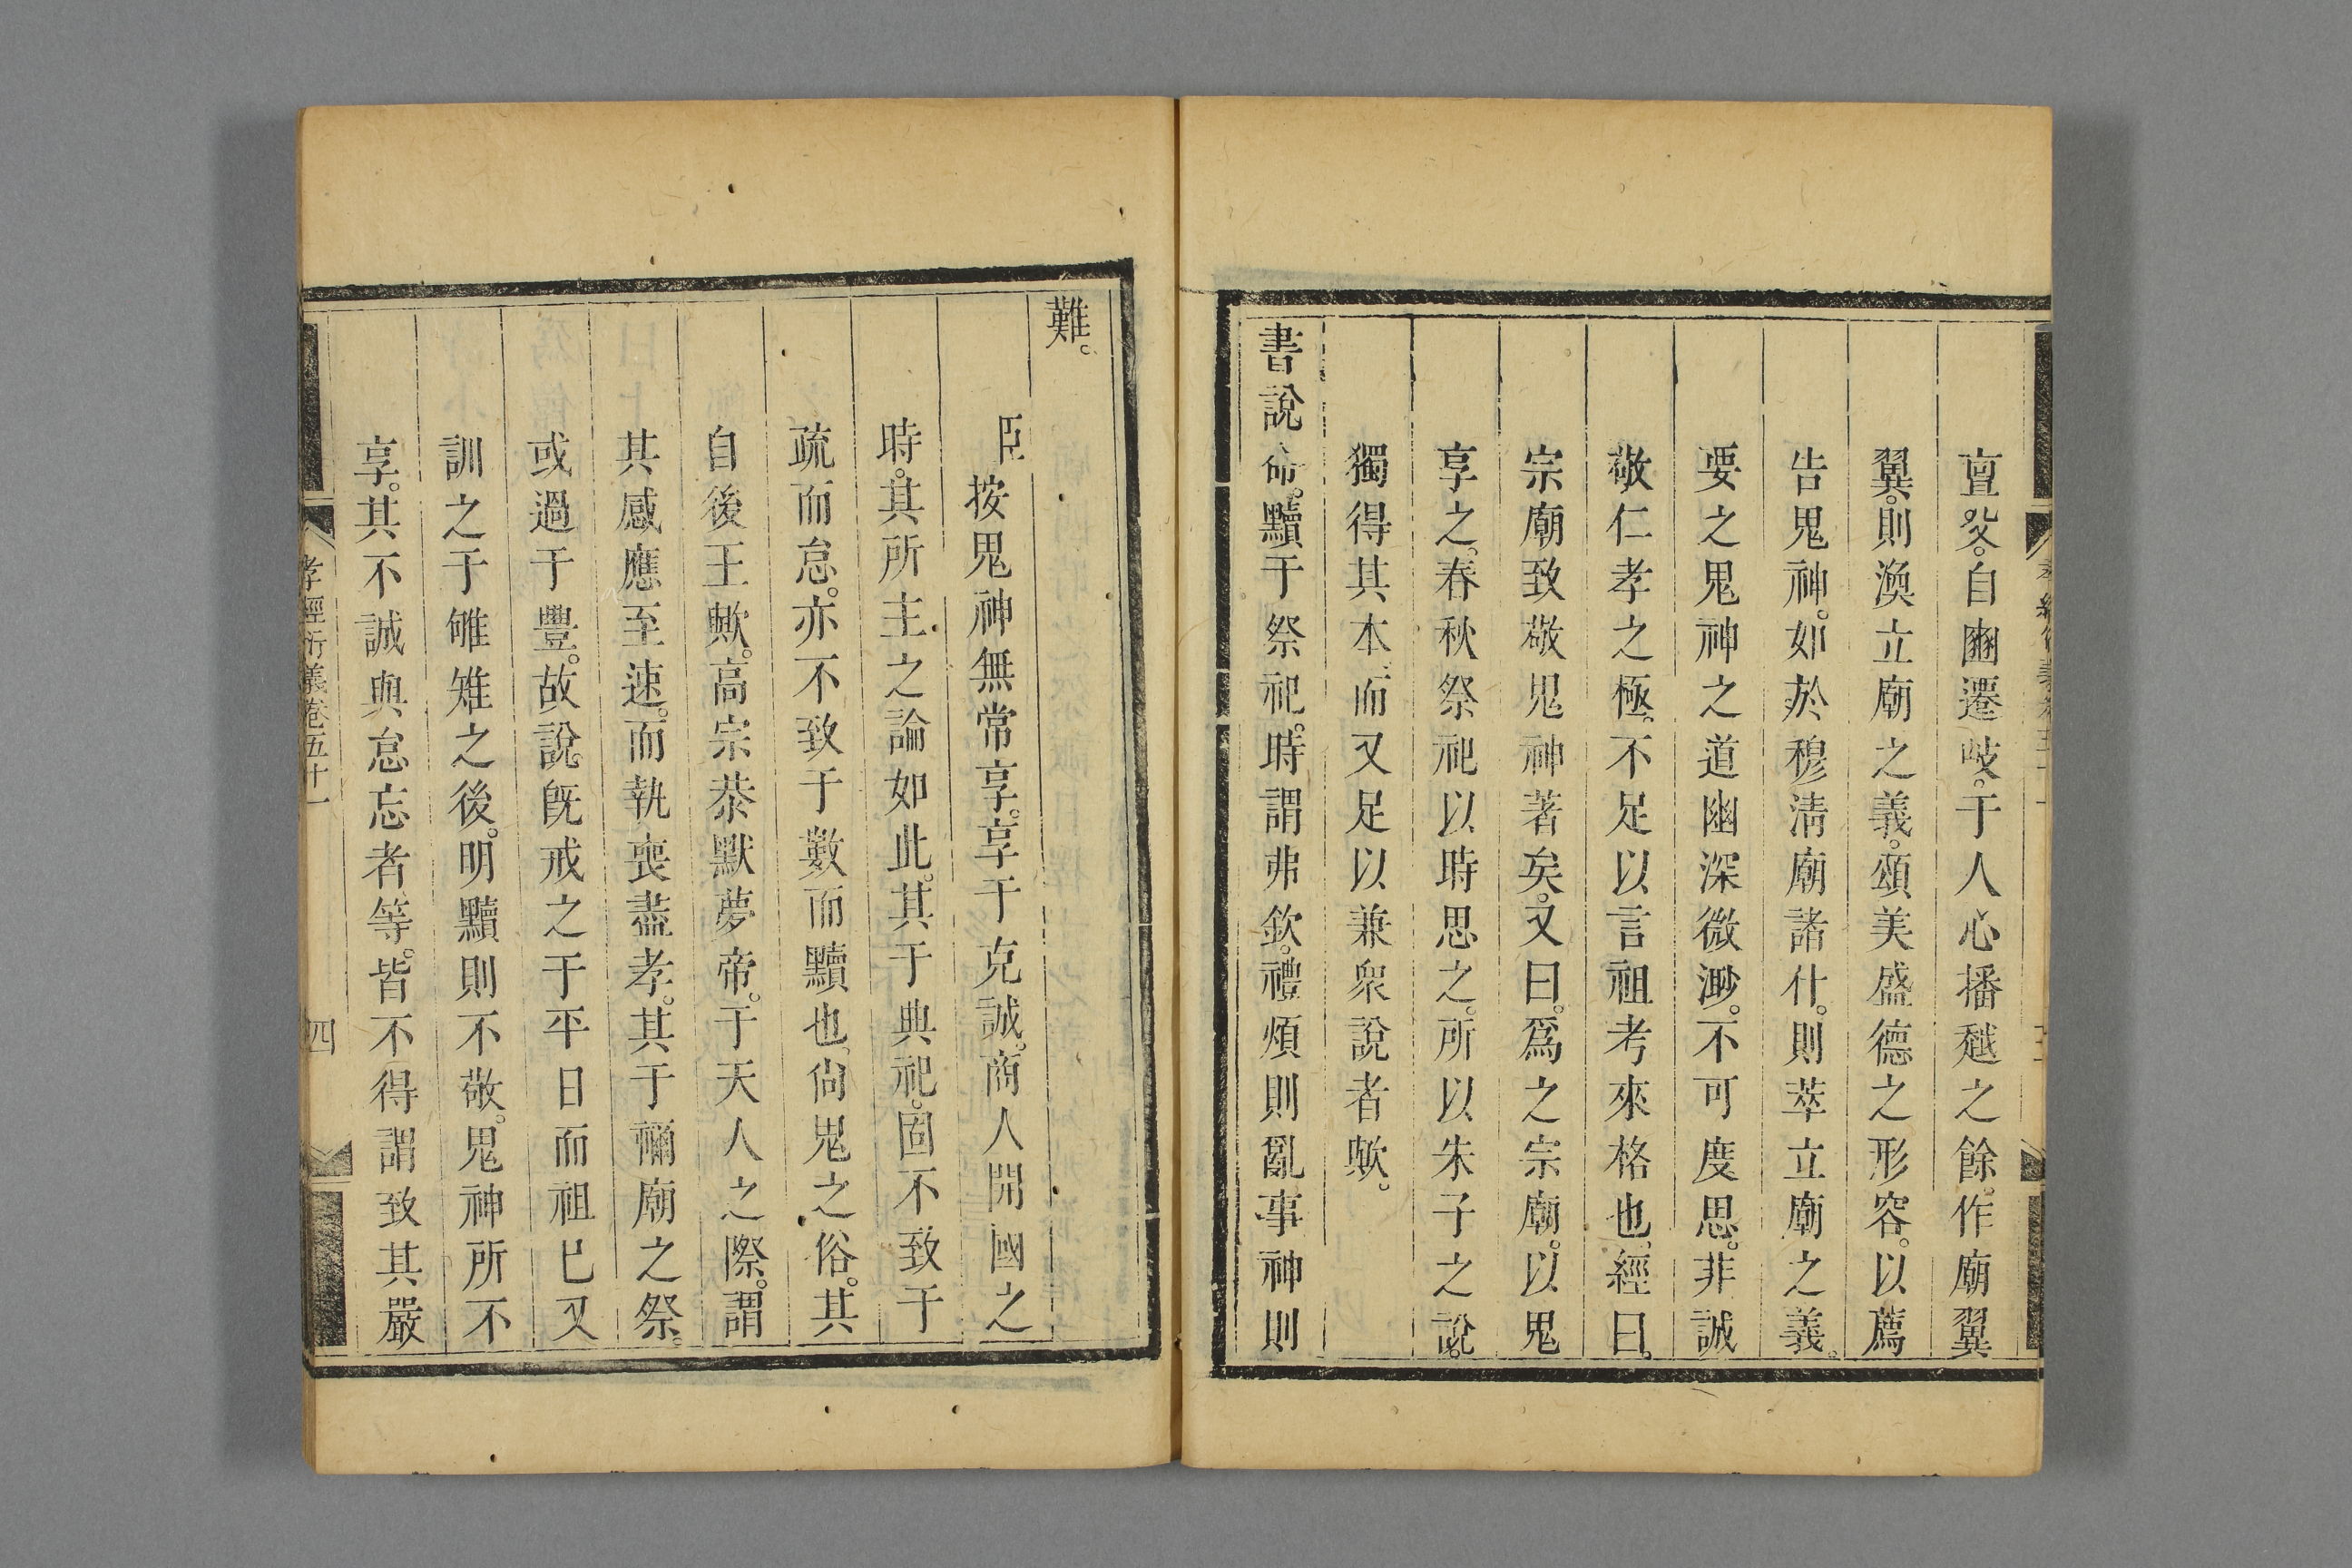 亶父。自豳遷岐。于人心播越之餘。作廟翼
翼。則渙立廟之義。頌美盛德之形容。以薦
告鬼神。如於穆淸廟諸什。則萃立廟之義。
要之鬼神之道幽深微渺。不可度思。非誠
敬仁孝之極。不足以言祖考來格也。經曰。
宗廟致敬鬼神著矣。又曰。爲之宗廟。以鬼
享之。春秋祭祀以時思之。所以朱子之說。
獨得其本。而又足以兼衆說者歟。
書說命。黷于祭祀。時謂弗欽。禮煩則亂事神則
難。
臣按鬼神無常享。享于克誠。商人開國之
時。其所主之論如此。其于典祀。固不致于
疏而怠。亦不致于數而黷也。尙鬼之俗。其
自後王歟。高宗恭默夢帝。于天人之際。謂
其感應至速。而執喪盡孝。其于禰廟之祭。
或過于豐。故說旣戒之于平日而祖己又
訓之于雊雉之後。明黷則不敬。鬼神所不
享。其不誠與怠忘者等。皆不得謂致其嚴
孝經衍義卷五十一 四